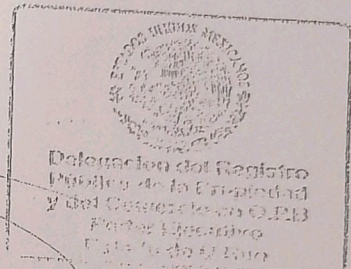 ESTADOS UNIDOS MEXICANOS
Delegacion del Registro
Público de la Propiedad
y del Comercio en
Poder Ejecutivo